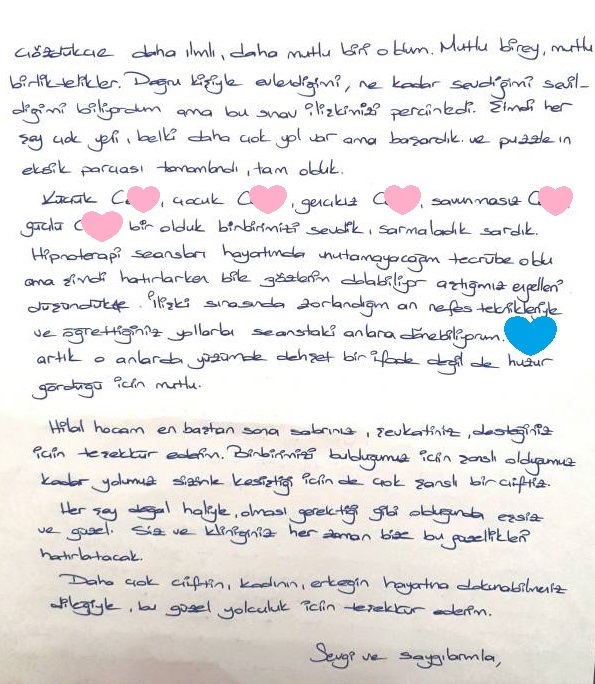 çözdükçe daha ılımlı, daha mutlu biri oldum. Mutlu birey, mutlu
birliktelikler. Doğru kişiyle evlendiğimi, ne kadar sevdiğimi sevil-
diğimi biliyordum ama bu sınav ilişkimizi perçinledi. Şimdi her
şey çok yeni, belki daha çok yol var ama başardık ve puzzle ın
eksik parçası tamamlandı, tam olduk.
Küçük C, çocuk C, genç kız C, savunmasız C,
güçlü C bir olduk birbirimizi sevdik, sarmaladık sardık.
Hipnoterapi seansları hayatımda unutamayacağım tecrübe oldu
ama şimdi hatırlarken bile gözlerim dolabiliyor aştığımız engelleri
düşündükçe. İlişki sırasında zorlandığım an nefes teknikleriyle
ve öğrettiğiniz yollarla seanstaki anlara dönebiliyorum.
artık o anlarda yüzümde dehşet bir ifade değil de huzur
gördüğü için mutlu.
Hilal hocam en baştan sona sabrınız, şevkatiniz, desteğiniz
için teşekkür ederim. Birbirimizi bulduğumuz için şanslı olduğumuz
kadar yolumuz sizinle kesiştiği için de çok şanslı bir çiftiz.
Her şey doğal haliyle, olması gerektiği gibi olduğunda eşsiz
ve güzel. Siz ve kliniğiniz her zaman bize bu güzellikleri
hatırlatacak.
Daha çok çiftin, kadının, erkeğin hayatına dokunabilmeniz
dileğiyle, bu güzel yolculuk için teşekkür ederim.
Sevgi ve saygılarımla,